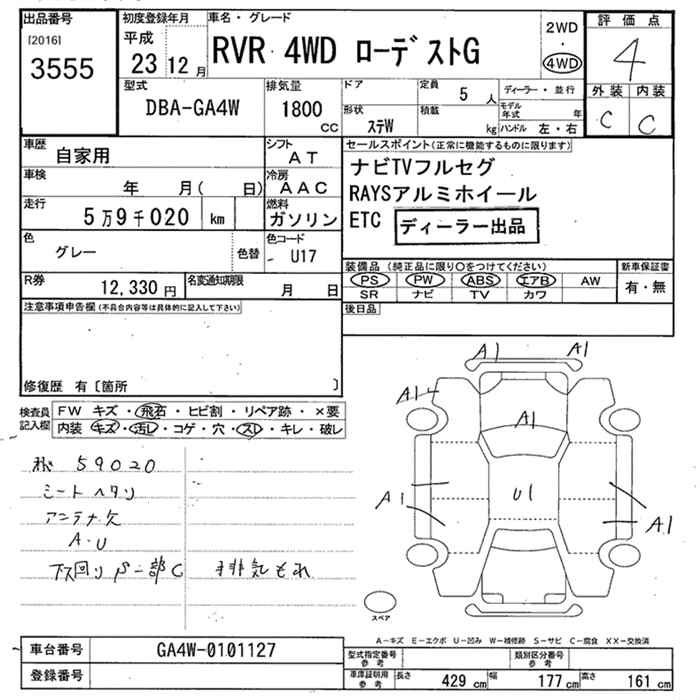 出品番号
[2016]
3555
初度登録年月
平成
23 12 月
車名・グレード
RVR 4WD ローデストG
2WD
・
4WD
評価点
4
外装 内装
C C
型式
DBA-GA4W
排気量
1800 CC
ドア
形状
ステW
定員
5 人
積載
kg
ディーラー・並行
モデル年式 年
ハンドル 左・右
車歴
自家用
シフト
AT
車検
年 月( 日)
冷房
AAC
走行
5万9千020 km
燃料
ガソリン
色
グレー
色替
色コード
U17
R券
12,330 円
名変通知期限
月 日
セールスポイント(正常に機能するものに限ります)
ナビTVフルセグ
RAYSアルミホイール
ETC ディーラー出品
装備品(純正品に限り○をつけてください)
PS PW ABS エアB AW
SR ナビ TV カワ
新車保証書
有・無
後日品
注意事項申告欄(不具合内容等は具体的に記入して下さい)
修復歴 有〔箇所 〕
検査員記入欄
FW キズ・飛石・ヒビ割・リペア跡・×要
内装 キズ・汚レ・コゲ・穴・スレ・キレ・破レ
59020
シートヘタリ
アンテナ欠
A・U
下回りS一部C
排気もれ
A1 A1
A1
A1
A1
U1
A1
スペア
A-キズ E-エクボ U-凹み W-補修跡 S-サビ C-腐食 XX-交換済
車台番号
GA4W-0101127
登録番号
型式指定番号
参考
類別区分番号
参考
車庫証明用
参考
長さ 429 cm 幅 177 cm 高さ 161 cm